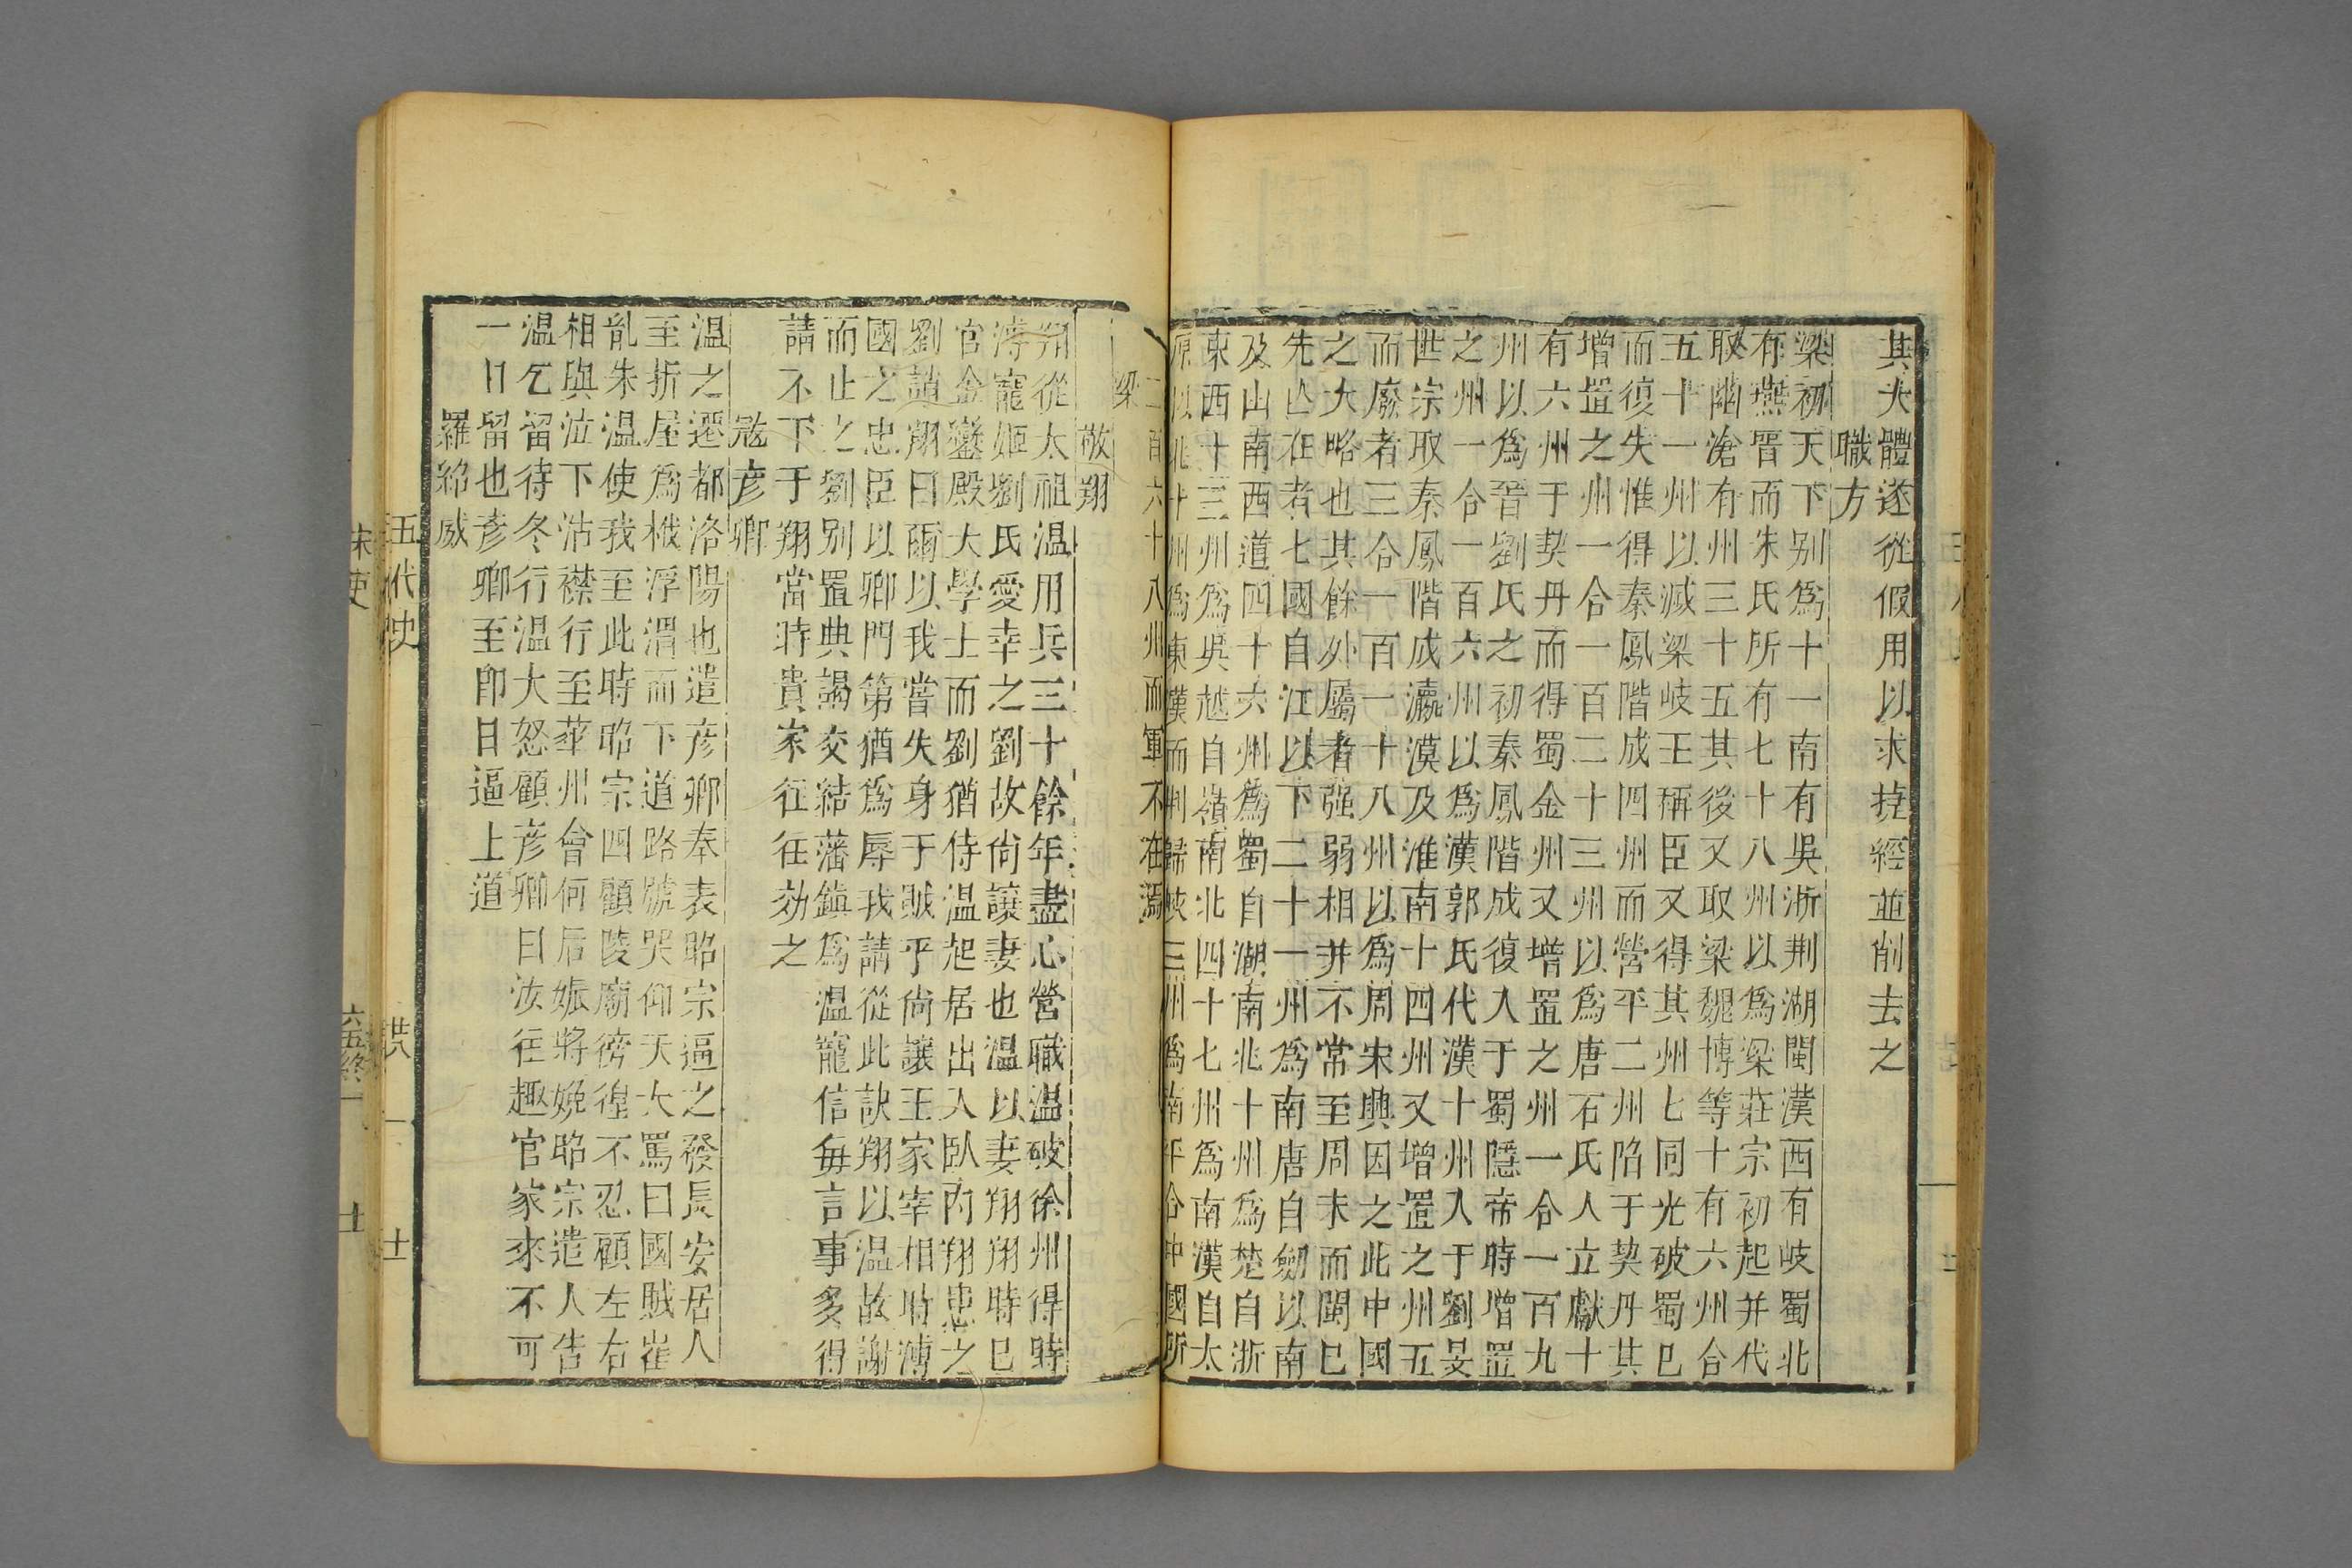 其大體遂從假用以求捷經並削去之
職方
梁初天下别爲十一南有吳浙荆湖閩漢西有岐蜀北
有燕晋而朱氏所有七十八州以爲梁莊宗初起并代
取幽滄有州三十五其後又取梁魏博等十有六州合
五十一州以滅梁岐王稱臣又得其州七同光破蜀已
而復失惟得秦鳳階成四州而營平二州陷于契丹其
增置之州一合一百二十三州以爲唐石氏人立獻十
有六州于契丹而得蜀金州又增置之州一合一百九
州以爲晉劉氏之初秦鳳階成復入于蜀隱帝時增置
之州一合一百六州以爲漢郭氏代漢十州入于劉旻
世宗取秦鳳階成瀛漠及淮南十四州又增置之州五
而廢者三合一百一十八州以爲周宋興因之此中國
之大略也其餘外屬者强弱相并不常至周末而閩已
先亡在者七國自江以下二十一州爲南唐自劒以南
及山南西道四十六州爲蜀自湖南北十州爲楚自浙
東西十三州爲吳越自嶺南北四十七州爲南漢自太
原以北十州爲東漢而荆歸峽三州爲南平合中國所
二百六十八州而軍不在焉
梁
敬翔
翔從太祖温用兵三十餘年盡心營職温破徐州得時
溥寵姬劉氏愛幸之劉故尚讓妻也温以妻翔翔時已
官金鑾殿大學士而劉猶侍温起居出入臥内翔患之
劉誚翔曰爾以我嘗失身于賊乎尚讓王家宰相時溥
國之忠臣以卿門第猶爲辱我請從此訣翔以温故謝
而止之劉别置典謁交結藩鎮爲温寵信每言事多得
請不下于翔當時貴家往往効之
寇彦卿
温之遷都洛陽也遣彦卿奉表昭宗逼之發長安居人
至折屋爲栰浮渭而下道路號哭仰天大罵曰國賊崔
亂朱温使我至此時昭宗四顧陵廟徬徨不忍顧左右
相與泣下沾襟行至華州會何后娠將娩昭宗遣人告
温乞留待冬行温大怒顧彦卿曰汝往趣官家來不可
一日留也彦卿至卽日逼上道
羅紹威
五代史